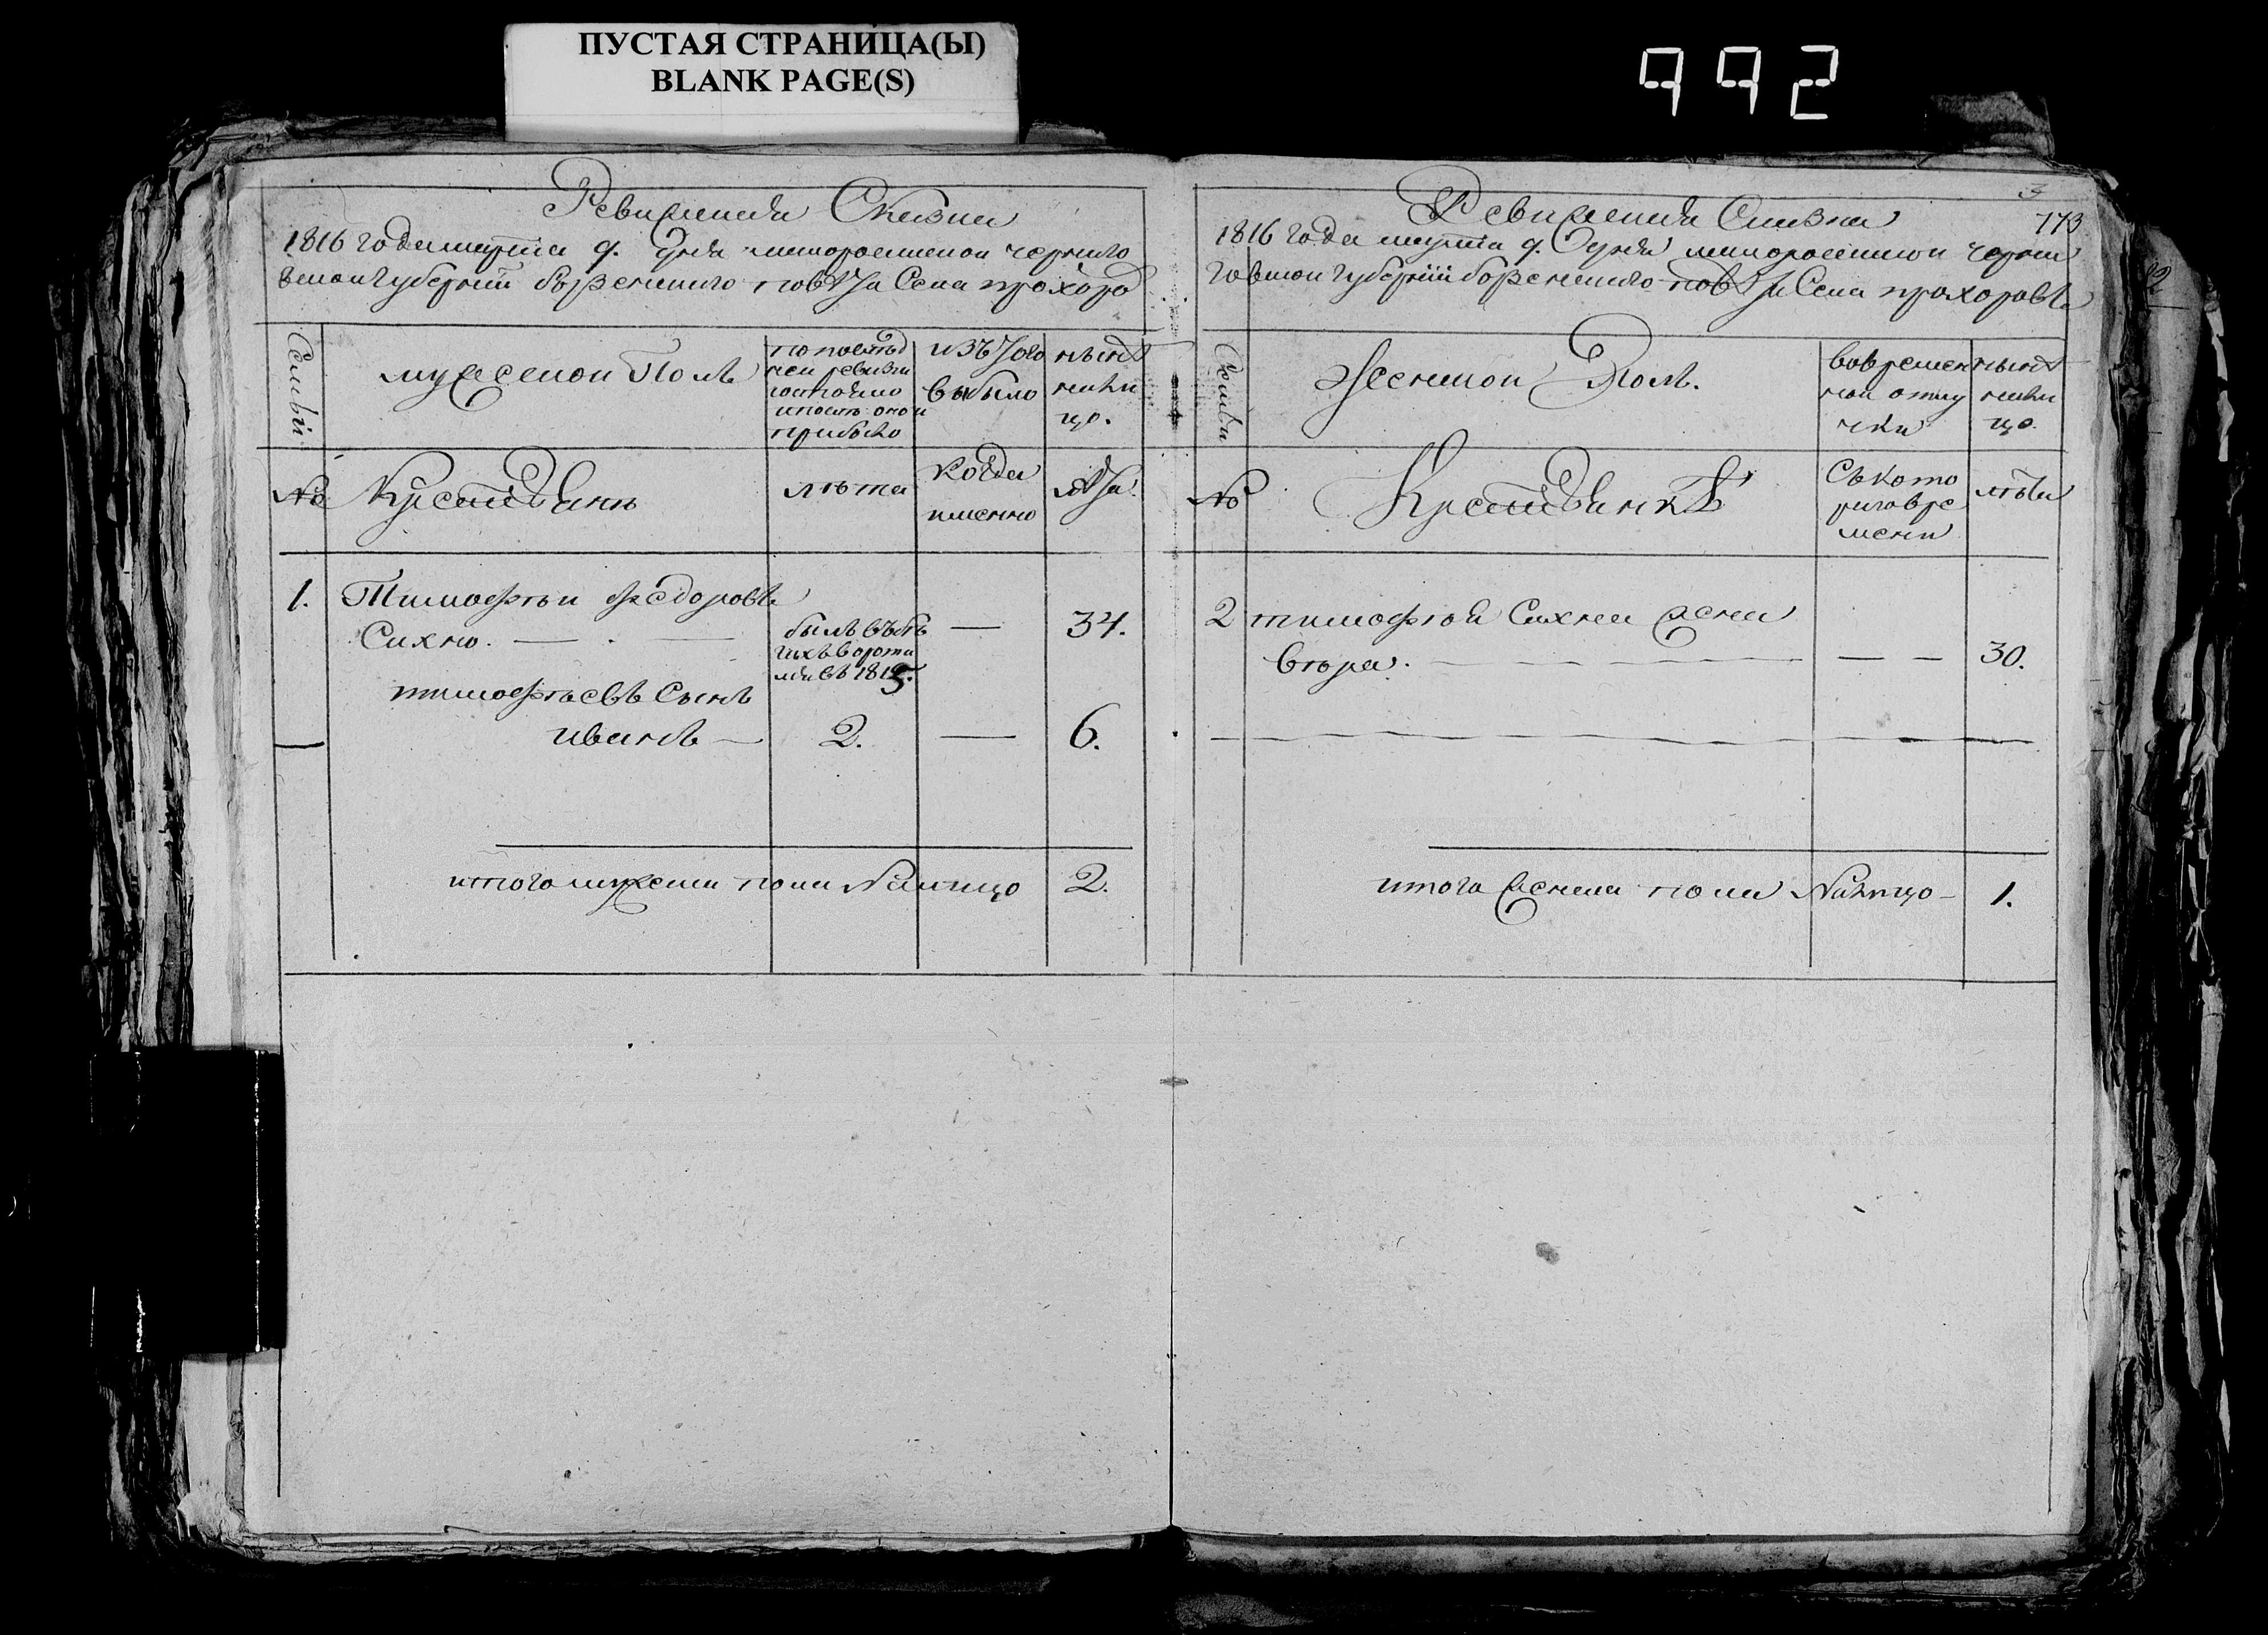 ПУСТАЯ СТРАНИЦА(Ы)
BLANK PAGE(S)
992
Ревижская Сказка
1816 года марта 9. дня малоросийской чернъго
вской губернии борзенского повѣта Села прохоро
Семьи
мужеской Полъ
по послѣд
ней ревизии
состояло
и послѣ оной
прибыло
изъ того
выбыло
нынѣ
нали
цо.
№
Крестьяне
лѣта
когда
именно
лѣта
1. Тимофѣй Федоровъ
Сихно.
былъ въ бѣ
гахъ вороти
лся въ 1815.
34.
тимофѣевъ Сынъ
иванъ
2.
6.
итого мужеска пола Налицо 2.
3
173
Ревижская Сказка
1816 года марта 9. дня малоросийской черни
говской губернии борзенского повѣта Села прохоровки
Семьи
Женской Полъ.
во времен
ной отлу
чки
нынѣ
нали
цо.
№
Крестьянкѣ
Съ кото
раго вре
мени
лѣта
2 тимофѣя Сихна жена
втора.
30.
итого женска пола Налицо 1.